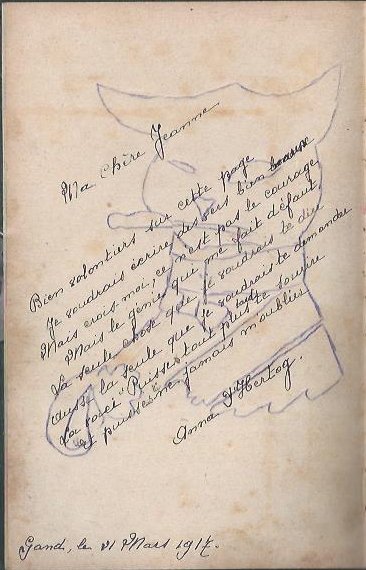 Ma Chère Jeanne
Bien volontiers sur cette page
Je voudrais écrire des vers bien
Mais crois moi, ce n'est pas le courage
Mais le génie qui me fait défaut
La seule chose que je voudrais te dire
Aussi la seule que je voudrais te demander
La voici "Puisse tout te sourire
et puisses n'en jamais m'oublier
Anna D'Hertog.
Gand, le 21 Mars 1917.